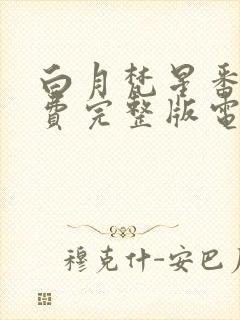 白月梵星番
费完整版電
穆克什-安巴